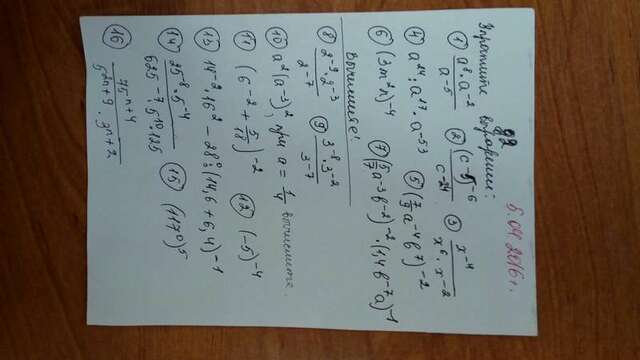 5.04.2016г.
Упростите выражения:
① a⁸·a⁻² / a⁻⁵ ② (c⁻⁵)⁻⁶ / c⁻²⁴ ③ x⁻⁴ / x⁶·x⁻²
④ a²⁴:a¹⁷·a⁻⁵³ ⑤ (7/9 a⁻⁴b⁷)⁻²
⑥ (3m²n)⁻⁴ ⑦ (5/7 a⁻³b⁻²)⁻²·(1,4b⁻⁷a)⁻¹
Вычисли:
⑧ 2⁻⁹·2⁻³ / 2⁻⁷ ⑨ 3⁻⁸·3⁻² / 3⁻⁷
⑩ a²(a⁻³)², при a = 1/4 вычислите.
⑪ (6⁻² + 5/17)⁻² ⑫ (-5)⁻⁴
⑬ 14⁻²·16² - 28⁰:(14,6+6,4)⁻¹
⑭ 25⁻⁸·5⁻⁴ / 625⁻⁷·5¹⁰·125 ⑮ (117⁰)⁵
⑯ 75ⁿ⁺⁴ / 5²ⁿ⁺⁹·3ⁿ⁺²